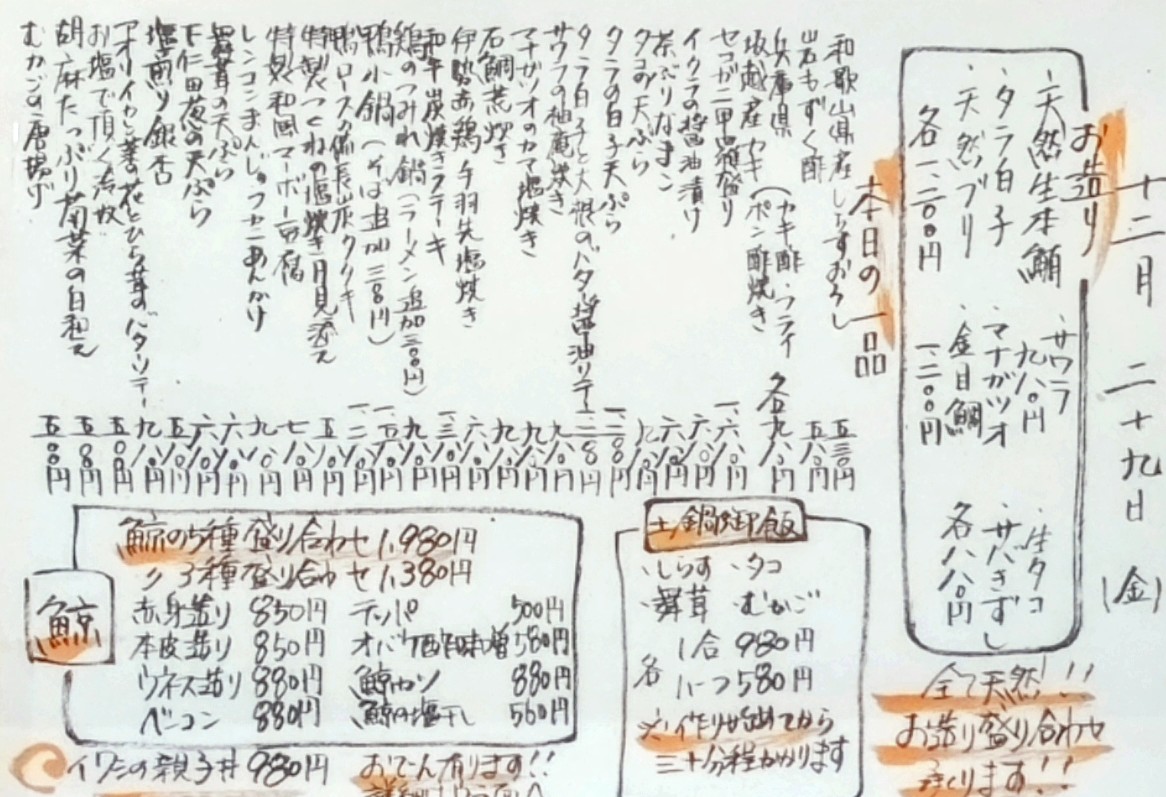 十二月 二十九日(金)
お造り
・天然生本鮪
・タラ白子
・天然ブリ
各一、二〇〇円
・サワラ
九八〇円
・マナガツオ
・金目鯛
一、二〇〇円
・生タコ
・サバきずし
各八八〇円
全て天然!!
お造り盛り合わせ
承ります!!
本日の一品
和歌山県産しらすおろし 五三〇円
岩もずく酢 五八〇円
兵庫県 坂越産 カキ(カキ酢・フライ ポン酢焼き) 各九八〇円
セコガニ甲羅盛り
イクラの醤油漬け
茶ぶりなまこ
タコの天ぷら
タラの白子天ぷら
タラ白子と大根のバター醤油ソテー
サワラの柚庵焼き
マナガツオのカマ塩焼き
石鯛荒焼き
伊勢赤鶏手羽先塩焼き
和牛炭焼きステーキ
鶏のつみれ鍋(ラーメン追加三〇〇円)
鴨小鍋(そば追加三〇〇円)
鴨ロースの備長炭タタキ
特製つくねの塩焼き月見添え
特製和風マーボー豆腐
レンコンまんじゅうカニあんかけ
舞茸の天ぷら
下仁田葱の天ぷら
塩煎り銀杏
アオリイカと菜の花とひら茸のバターソテー 九八〇円
お塩で頂く冷奴 五〇〇円
胡麻たっぷり菊菜の白和え 五八〇円
むかごの唐揚げ 五〇〇円
鯨
鯨の5種盛り合わせ 1,980円
〃 3種盛り合わせ 1,380円
赤身造り 850円
本皮造り 850円
ウネス造り 880円
ベーコン 880円
テッパ 500円
オバケ酢味噌 580円
鯨カツ 880円
鯨の塩干し 560円
土鍋御飯
・しらす ・タコ
・舞茸 ・むかご
各 1合 980円
ハーフ 580円
※作り始めてから
三十分程かかります
イワシの親子丼 980円
おでん有ります!!